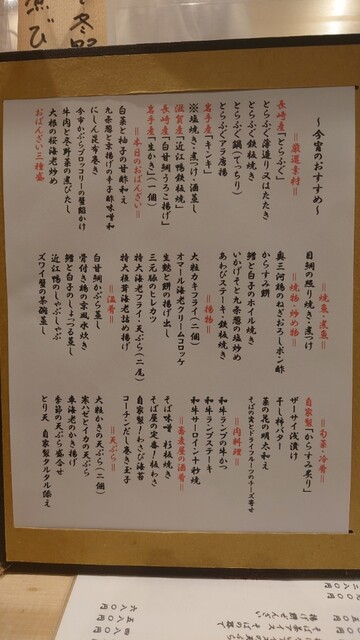 ～今宵のおすすめ～
＝厳選素材＝
長崎産「とらふぐ」
とらふぐ薄造り又はたたき
とらふぐ鉄板焼き
とらふぐ鍋(てっちり)
とらふぐアラ唐揚
岩手産「キンキ」
※塩焼き・煮つけ・酒蒸し
滋賀産「近江鴨鉄板焼」
長崎産「白甘鯛うろこ揚げ」
岩手産「生かき」(一個)
＝本日のおばんざい＝
白菜と柚子の甘酢和え
九条葱と京揚げの辛子酢味噌和
にしん昆布巻き
今市かぶらブロッコリーの蟹餡かけ
牛肉と冬野菜の煮びたし
大根の桜海老炒め
おばんざい三種盛
＝焼魚・煮魚＝
目鯛の照り焼き・煮つけ
＝焼物・炒め物＝
奥三河鶏のねぎおろしポン酢
からすみ餅
鱈と白子のホイル焼き
いかげそと九条葱の塩炒め
あわびステーキ・鉄板焼き
＝揚物＝
大粒カキフライ(二個)
オマール海老クリームコロッケ
生麩と餅の揚げ出し
三元豚のヒレカツ
特大海老フライ・天ぷら(二尾)
特大椎茸海老詰め揚げ
＝温肴＝
白甘鯛かぶら蒸し
骨付き鶏の京風水炊き
鱈と白子のしょっつる蒸し
近江鴨のしゃぶしゃぶ
ズワイ蟹の茶碗蒸し
＝旬菜・冷肴＝
自家製「からすみ炙り」
ザーサイ浅漬け
干し柿バター
菜の花の明太和え
そばの実とドライフルーツのチーズ寄せ
＝肉料理＝
和牛ランプの牛かつ
和牛ランプステーキ
和牛サーロイン十秒焼
＝蕎麦屋の酒肴＝
そば味噌 杉板焼き
そば屋の定番!!板わさ
自家製!!わさび海苔
コーチンだし巻き玉子
＝天ぷら＝
大粒かきの天ぷら(二個)
寒ハゼとイカの天ぷら
車海老のかき揚げ
季節の天ぷら盛合せ
とり天 自家製タルタル添え